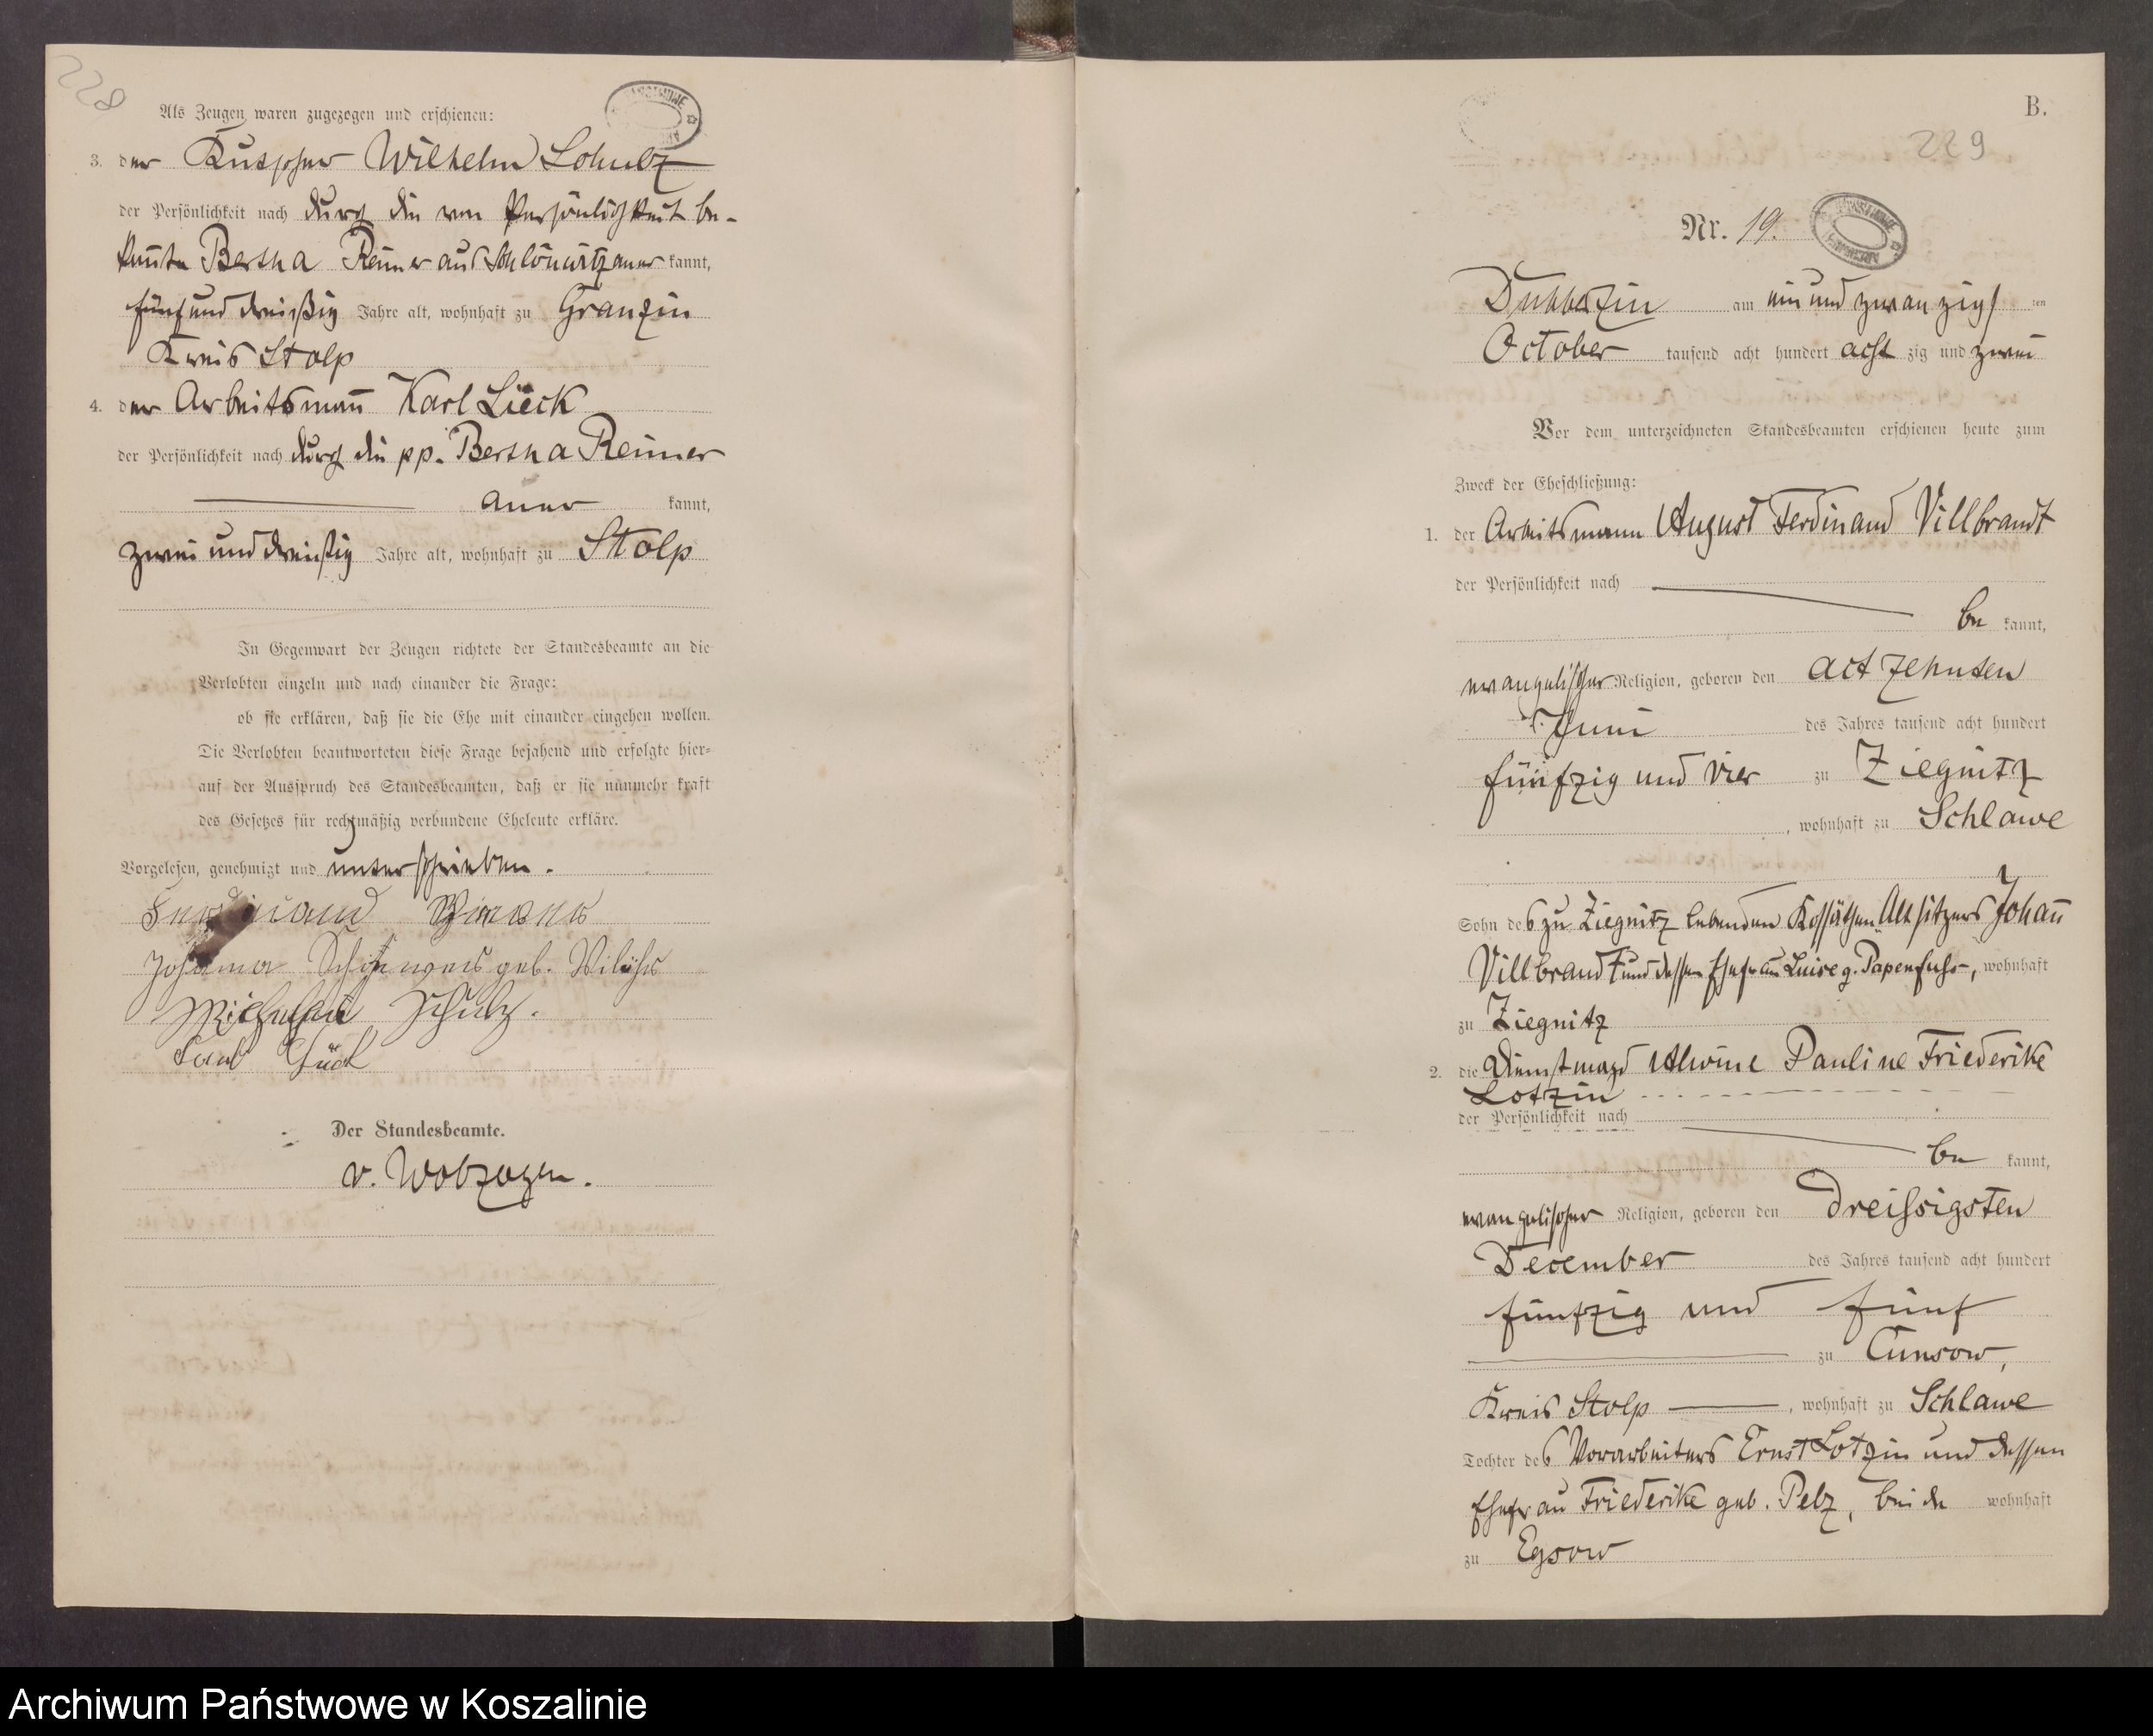 228
Als Zeugen waren zugezogen und erschienen:
3. der Kutscher Wilhelm Schulz
der Persönlichkeit nach durch die von Persönlichkeit be-
kannte Bertha Reimer aus Schlönwitz aner kannt,
fünf und dreißig Jahre alt, wohnhaft zu Granzin
Kreis Stolp
4. der Arbeitsmann Karl Lück
der Persönlichkeit nach durch die pp. Bertha Reimer
aner kannt,
zwei und dreißig Jahre alt, wohnhaft zu Stolp
In Gegenwart der Zeugen richtete der Standesbeamte an die
Verlobten einzeln und nach einander die Frage:
ob sie erklären, daß sie die Ehe mit einander eingehen wollen.
Die Verlobten beantworteten diese Frage bejahend und erfolgte hier-
auf der Ausspruch des Standesbeamten, daß er sie nunmehr kraft
des Gesetzes für rechtmäßig verbundene Eheleute erkläre.
Vorgelesen, genehmigt und unterschrieben.
Ferdinand
Johanna geb.
Schulz.
Karl Lück
Der Standesbeamte.
v. Wobzogen.
B.
229
Nr. 19.
Dubberzin am ein und zwanzigs ten
October tausend acht hundert acht zig und zwei
Vor dem unterzeichneten Standesbeamten erschienen heute zum
Zweck der Eheschließung:
1. der Arbeitsmann August Ferdinand Villbrandt
der Persönlichkeit nach
be kannt,
evangelischer Religion, geboren den actzehnten
Juni des Jahres tausend acht hundert
fünfzig und vier zu Ziegnitz
, wohnhaft zu Schlawe
Sohn des zu Ziegnitz lebenden Kossäthen Altsitzers Johann
Villbrandt und dessen Ehefrau Luise g. Papenfuhs, wohnhaft
zu Ziegnitz
2. die Dienstmagd Alwine Pauline Friederike
Lotzin
der Persönlichkeit nach
be kannt,
evangelischer Religion, geboren den dreissigsten
December des Jahres tausend acht hundert
fünfzig und fünf
zu Cunsow,
Kreis Stolp , wohnhaft zu Schlawe
Tochter des Vorarbeiters Ernst Lotzin und dessen
Ehefrau Friederike geb. Pelz, beide wohnhaft
zu Egsow
Archiwum Państwowe w Koszalinie